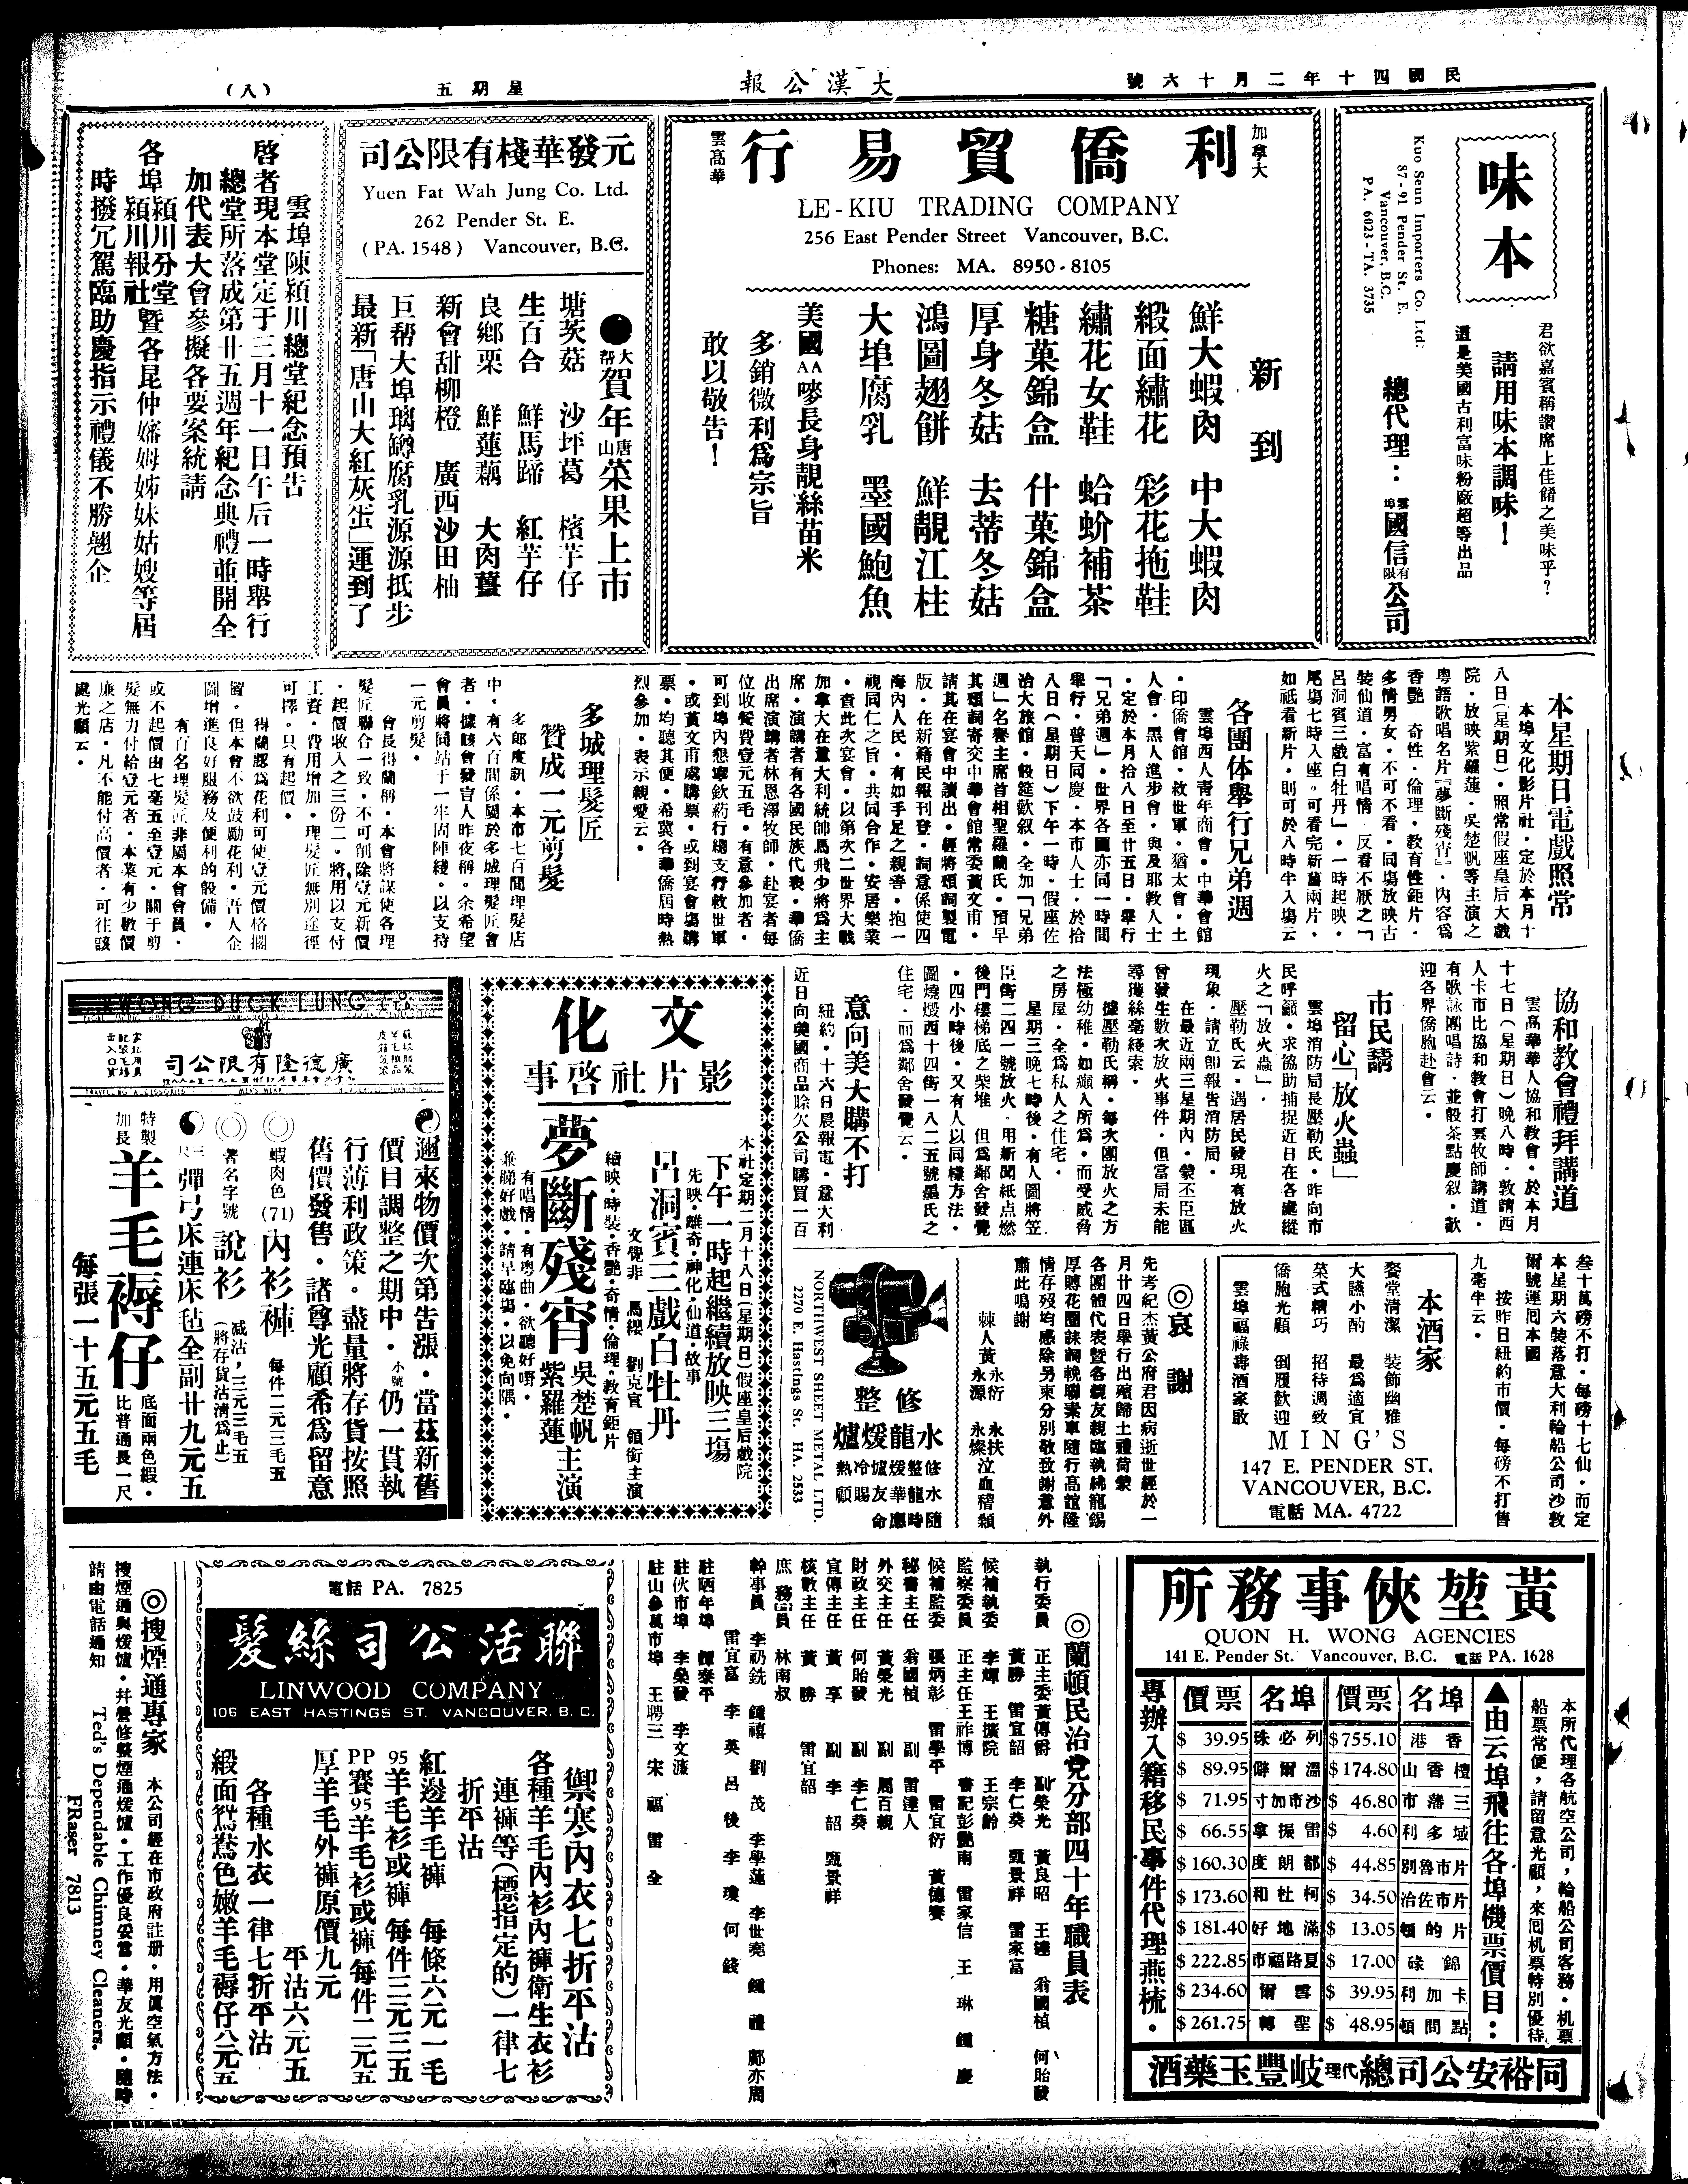 民國四十年二月十六號
大漢公報
星期五
(八)
味本
君欲嘉賓稱讚席上佳餚之美味乎?
請用味本調味!
這是美國古利富味粉廠超等出品
總代理:雲埠國信有限公司
Kuo Seun Importers Co. Ltd.
87-91 Pender St. E.
Vancouver, B.C.
PA. 6023 - TA. 3735
加拿大
利僑貿易行
雲高華
LE-KIU TRADING COMPANY
256 East Pender Street Vancouver, B.C.
Phones: MA. 8950-8105
新到
鮮大蝦肉 中大蝦肉
緞面繡花 彩花拖鞋
繡花女鞋 蛤蚧補茶
糖菓錦盒 什菓錦盒
厚身冬菇 去蒂冬菇
鴻圖翅餅 鮮靚江柱
大埠腐乳 墨國鮑魚
美國AA嘜長身靚絲苗米
多銷微利爲宗旨
敢以敬告!
元發華棧有限公司
Yuen Fat Wah Jung Co. Ltd.
262 Pender St. E.
(PA. 1548) Vancouver, B.C.
大帮賀年唐山菜果上市
塘茨菇 沙坪葛 檳芋仔
生百合 鮮馬蹄 紅芋仔
良鄉栗 鮮蓮藕 大肉薑
新會甜柳橙 廣西沙田柚
巨帮大埠璃罇腐乳源源抵步
最新「唐山大紅灰蛋」運到了
雲埠陳潁川總堂紀念預告
啓者現本堂定于三月十一日午后一時舉行
總堂所落成第廿五週年紀念典禮並開全
加代表大會參擬各要案統請
各埠潁川分堂
潁川報社暨各昆仲嬸姆姊妹姑嫂等屆
時撥冗駕臨助慶指示禮儀不勝翹企
本星期日電戲照常
本埠文化影片社·定於本月十
八日(星期日)·照常假座皇后大戲
院·放映紫羅蓮·吳楚帆等主演之
粵語歌唱名片『夢斷殘宵』·內容爲
香艷 奇性·倫理·教育性鉅片·
多情男女·不可不看·同塲放映古
裝仙道·富有唱情 反看不厭之『
呂洞賓三戲白牡丹』·一時起映·
尾塲七時入座·可看完新舊兩片·
如祗看新片·則可於八時半入塲云
各團体舉行兄弟週
雲埠西人青年商會·中華會館
·印僑會館·救世軍·猶太會·土
人會·黑人進步會·與及耶教人士
·定於本月拾八日至廿五日·舉行
「兄弟週」·世界各國亦同一時間
舉行·普天同慶·本市人士·於拾
八日(星期日)下午一時·假座佐
治大旅館·設筵歡叙·全加「兄弟
週」名譽主席首相聖羅蘭氏·預早
其頌詞寄交中華會館常委黃文甫·
請其在宴會中讀出·經將頌詞製電
版·在新籍民報刊登·詞意係使四
海內人民·有如手足之親善·抱一
視同仁之旨·共同合作·安居樂業
·查此次宴會·以第次二世界大戰
加拿大在意大利統帥馬飛少將爲主
席·演講者有各國民族代表·華僑
出席演講者林恩澤牧師·赴宴者每
位收餐費壹元五毛·有意參加者·
可到埠內懇寧欽葯行總支行救世軍
·或黃文甫處購票·或到宴會塲購
票·均聽其便·希冀各華僑屆時熱
烈參加·表示親愛云·
多城理髮匠
贊成一元剪髮
多郎度訊·本市七百間理髮店
中·有六百間係屬於多城理髮匠會
者·據該會發言人昨夜稱·余希望
會員將同站于一牢固陣綫·以支持
一元剪髮·
會長得蘭稱·本會將謀使各理
髮匠聯合一致·不可削除壹元新價
·起價收入之三份二·將用以支付
工資·費用增加·理髮匠無別途徑
可擇·只有起價·
得蘭認爲花利可使壹元價格擱
置·但本會不欲鼓勵花利·吾人企
圖增進良好服務及便利的設備·
有百名理髮匠非屬本會會員·
或不起價由七毫五至壹元·關于剪
髮無力付給壹元者·本業有少數價
廉之店·凡不能付高價者·可往該
處光顧云·
協和教會禮拜講道
雲高華華人協和教會·於本月
十七日(星期日)晚八時·敦請西
人卡市比協和教會打雲牧師講道·
有歌詠團唱詩·並設茶點慶叙·歡
迎各界僑胞赴會云·
市民請
留心「放火蟲」
雲埠消防局長壓勒氏·昨向市
民呼籲·求協助捕捉近日在各處縱
火之「放火蟲」·
壓勒氏云·遇居民發現有放火
現象·請立即報告消防局·
在最近兩三星期內·蒙丕臣區
曾發生數次放火事件·但當局未能
尋獲絲毫綫索·
據壓勒氏稱·每次團放火之方
法極幼稚·如癲人所爲·而受威脅
之房屋·全爲私人之住宅·
星期三晚七時後·有人圖將笠
臣街二四一號放火·用新聞紙点燃
後門樓梯底之柴堆 但爲鄰舍發覺
·四小時後·又有人以同樣方法·
圖燒燬西十四街一八二五號墨氏之
住宅·而爲鄰舍發覺云·
意向美大購不打
紐約·十六日晨報電·意大利
近日向美國商品賒欠公司購買一百
叁十萬磅不打·每磅十七仙·而定
本星期六裝落意大利輪船公司沙敦
爾號運囘本國
按昨日紐約市價·每磅不打售
九毫半云·
本酒家
餐堂清潔 裝飾幽雅
大讌小酌 最爲適宜
菜式精巧 招待週致
僑胞光顧 倒履歡迎
雲埠福祿壽酒家啟
MING'S
147 E. PENDER ST.
VANCOUVER, B.C.
電話 MA. 4722
◎哀謝
先考紀杰黃公府君因病逝世經於一
月廿四日舉行出殯歸土禮荷蒙
各團體代表暨各親友親臨執紼寵錫
厚賻花圈誄詞輓聯素車隨行高誼隆
情存歿均感除另柬分別敬致謝意外
肅此鳴謝
棘人黃永衍 永源 永扶 永燦 泣血稽顙
修整
水龍煖爐
修整煖爐冷熱
水龍華友賜顧
隨時應命
NORTHWEST SHEET METAL LTD.
2270 E. Hastings St. HA. 2533
文化
影片社啓事
本社定期二月十八日(星期日)假座皇后戲院
下午一時起繼續放映三塲
先映·離奇·神化·仙道·故事
呂洞賓三戲白牡丹
文覺非 馬纓 劉克宣 領銜主演
續映·時裝·香艷·奇情·倫理·教育鉅片
夢斷殘宵 吳楚帆 紫羅蓮 主演
有唱情·有粵曲·欲聽好嘢·
兼睇好戲·請早臨塲·以免向隅·
KWONG DUCK LUNG CO. LTD.
廣德隆有限公司
TRAVELLING ACCESSORIES MEN'S WEAR
邇來物價次第告漲·當茲新舊
價目調整之期中·小號仍一貫執
行薄利政策·盡量將存貨按照
舊價發售·諸尊光顧希爲留意
蝦肉色(71)內衫褲 每件二元三毛五
著名字號 說衫 减沽,三元三毛五(將存貨沽清爲止)
三尺彈弓床連床毡全副廿九元五
特製加長 羊毛褥仔 底面兩色緞·比普通長一尺
每張一十五元五毛
黃堃俠事務所
QUON H. WONG AGENCIES
141 E. Pender St. Vancouver, B.C. 電話 PA. 1628
本所代理各航空公司,輪船公司客務·机票
船票常便,請留意光顧,來囘机票特別優待
▲由云埠飛往各埠機票價目:
埠名 票價 埠名 票價
香港 $755.10 列必珠 $39.95
檀香山 $174.80 溫爾僻 $89.95
三藩市 $46.80 沙市加寸 $71.95
域多利 $4.60 雷振拿 $66.55
片市魯別 $44.85 都朗度 $160.30
片市佐治 $34.50 柯杜和 $173.60
片的頓 $13.05 滿地好 $181.40
錦碌 $17.00 夏路福市 $222.85
卡加利 $39.95 雲爾 $234.60
點問頓 $48.95 聖轉 $261.75
專辦入籍移民事件代理燕梳·
同裕安公司總代理岐豐玉藥酒
◎蘭頓民治党分部四十年職員表
執行委員 正主委黃傳爵 副榮光 黃良昭 王連 翁國楨 何貽發
黃勝 雷宜韶 李仁葵 甄景祥 雷家富
候補執委 李輝 王擴院 王宗齡
監察委員 正主任王祚博 書記彭艷南 雷家信 王琳 鍾慶
候補監委 張炳彰 雷學平 雷宜衍 黃德賽
秘書主任 翁國楨 副 雷達人
外交主任 黃榮光 副 周百親
財政主任 何貽發 副 李仁葵
宣傳主任 黃享 副 李韶 甄景祥
核數主任 黃勝 雷宜韶
庶務員 林南叔
幹事員 李礽銑 鍾禧 劉茂 李學蓮 李世堯 鍾禮 鄺亦周
雷宜富 李英 呂後 李瓊 何錢
駐晒年埠 譚泰平
駐伙市埠 李燊發 李文濂
駐山參萬市埠 王聘三 宋福 雷全
電話 PA. 7825
聯活公司絲髮
LINWOOD COMPANY
106 EAST HASTINGS ST. VANCOUVER. B. C.
禦寒內衣七折平沽
各種羊毛內衫內褲衛生衣衫
連褲等(標指定的)一律七
折平沽
紅邊羊毛褲 每條六元一毛
95羊毛衫或褲 每件三元三五
PP賽95羊毛衫或褲每件二元五
厚羊毛外褲原價九元
平沽六元五
各種水衣一律七折平沽
緞面鴛鴦色嫩羊毛褥仔公元五
◎搜煙通專家
本公司經在市政府註册·用眞空氣方法·
搜煙通與煖爐·幷營修整煙通煖爐·工作優良妥當·華友光顧·隨時
請由電話通知
Ted's Dependable Chimney Cleaners.
FRaser 7813